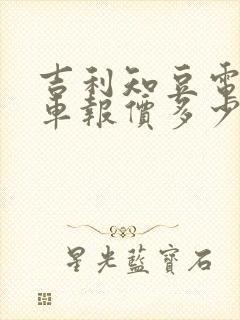 吉利知豆電
車報價多少
星光藍寶石